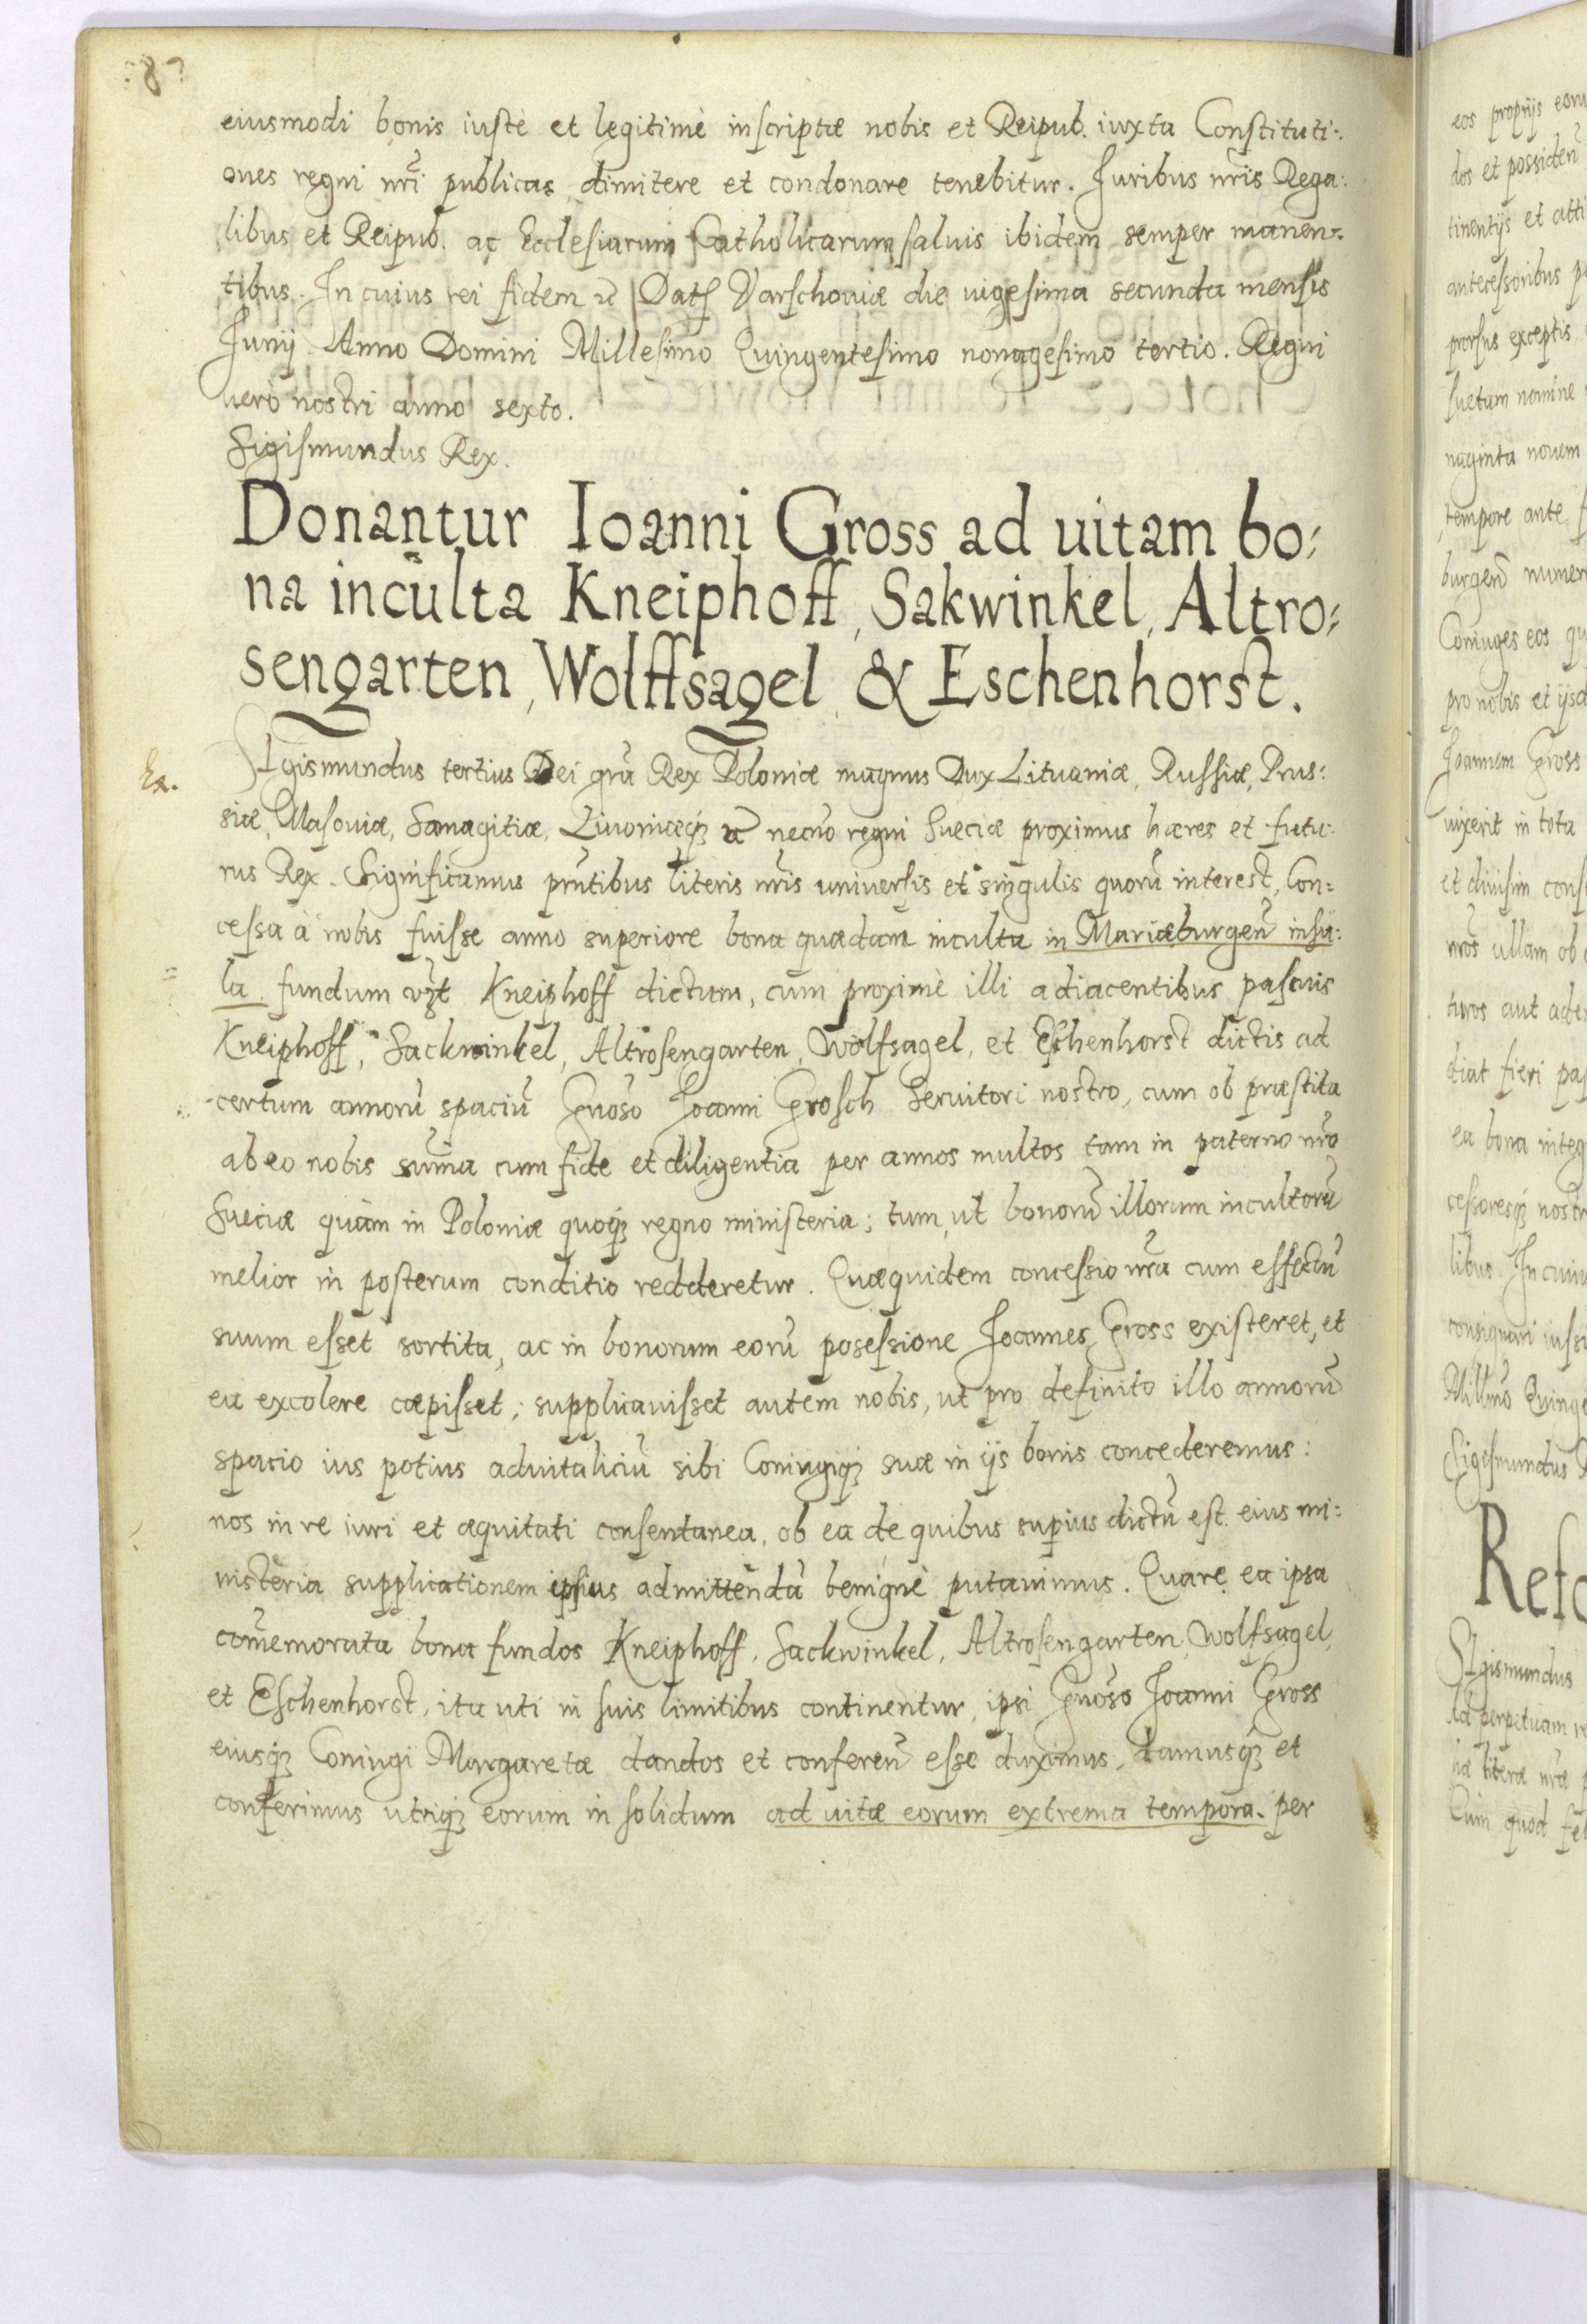 8
eiusmodi bonis iustè et legitimè inscriptæ nobis et Reipub. iuxta Constituti:
ones regni nr̃i publicas dimitere et condonare tenebitur. Iuribus nr̃is Rega:
libus et Reipub. ac Ecclesiarum Catholicarum saluis ibidem semper manen:
tibus. In cuius rei fidem Dat Varschouiæ die uigesima secunda mensis
Iunij Anno Domini Millesimo Quingentesimo nonagesimo tertio. Regni
uerò nostri anno sexto.
Sigismundus Rex.
Donantur Ioanni Gross ad uitam bo:
na inculta Kneiphoff, Sakwinkel, Altro:
sengarten, Wolffsagel, & Eschenhorst.
Ex.
Sigismundus tertius Dei grã Rex Poloniæ magnus Dux Lituaniæ, Russiæ, Prus:
siæ, Masouiæ, Samagitiæ, Liuoniæq3 necnõ regni Sueciæ proximus hæres et futu:
rus Rex. Significamus pn̄tibus literis nr̃is uniuersis et singulis quorũ interest, Con=
cessa à nobis fuisse anno superiore bona quædam inculta in Mariæburgeñ insu:
la. fundum vz̃t Kneiphoff dictum, cum proximè illi adiacentibus pascuis
Kneiphoff, Sackwinkel, Altrosengarten, Wolfsagel, et Eschenhorst dictis ad
certum annorũ spaciũ Gnõso Ioanni Grosch Seruitori nostro, cum ob præstita
ab eo nobis sum̃a cum fide et diligentia per annos multos tam in paterno nr̃o
Sueciæ quàm in Poloniæ quoq3 regno ministeria; tum, ut bonorũ illorum incultorũ
melior in posterum conditio redderetur. Quæquidem concessio nr̃a cum effectũ
suum esset sortita, ac in bonorum eorũ posessione Joannes Gross existeret, et
ea excolere cæpisset; supplicauisset autem nobis, ut pro definito illo annorũ
spacio ius potius aduitaliciũ sibi Coniugiq3 suæ in ijs bonis concederemus:
nos in re iuri et æquitati consentanea, ob ea de quibus supius dictũ est eius mi:
nisteria supplicationem ipsius admittendã benignè putauimus. Quare ea ipsa
com̃emorata bona fundos Kneiphoff, Sackwinkel, Altrosengarten, Wolfsagel,
et Eschenhorst, ita uti in suis limitibus continentur, ipsi Gnõso Joanni Gross
eiusq3 Coniugi Margaretæ dandos et confereñ esse duximus, damusq3 et
conferimus utriq3 eorum in solidum ad uitæ eorum extrema tempora. per
eos proprijs
dos et possideñ
tinentijs et
antecessoribus
prorsus exceptis
suetam nomine
naginta nouem
tempore ante
burgeñ
Coniuges eos
pro nobis et
Joannem Gross
uixerit in tota
et diuisim
nr̃os ullam ob
turos aut
diat fieri
ea bona
cessoresq3
libus. In
consignari
Sigismundus
Sigismundus
Ad perpetuam
Cum quod